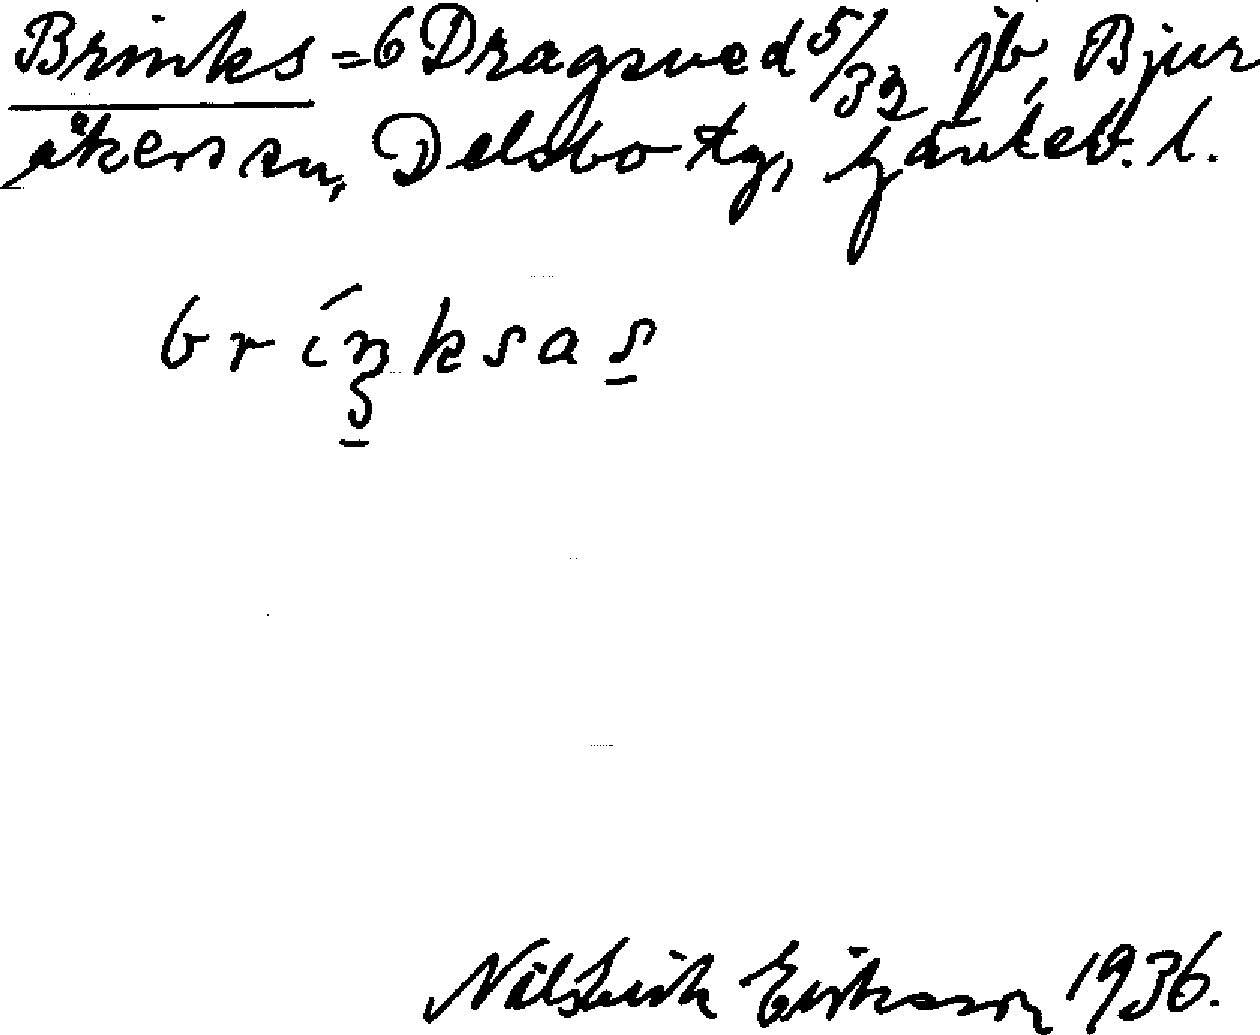 Brinks = 6 Dragsved 5/32 jb, Bjur
åkers sn, Delsbo tg, Gävleb. l.
bríŋksas
Nilserik Eriksson 1936.